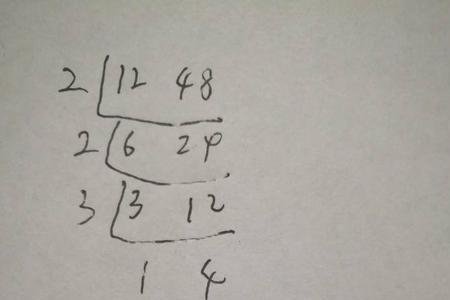 2 12 48
2 6 24
3 3 12
1 4